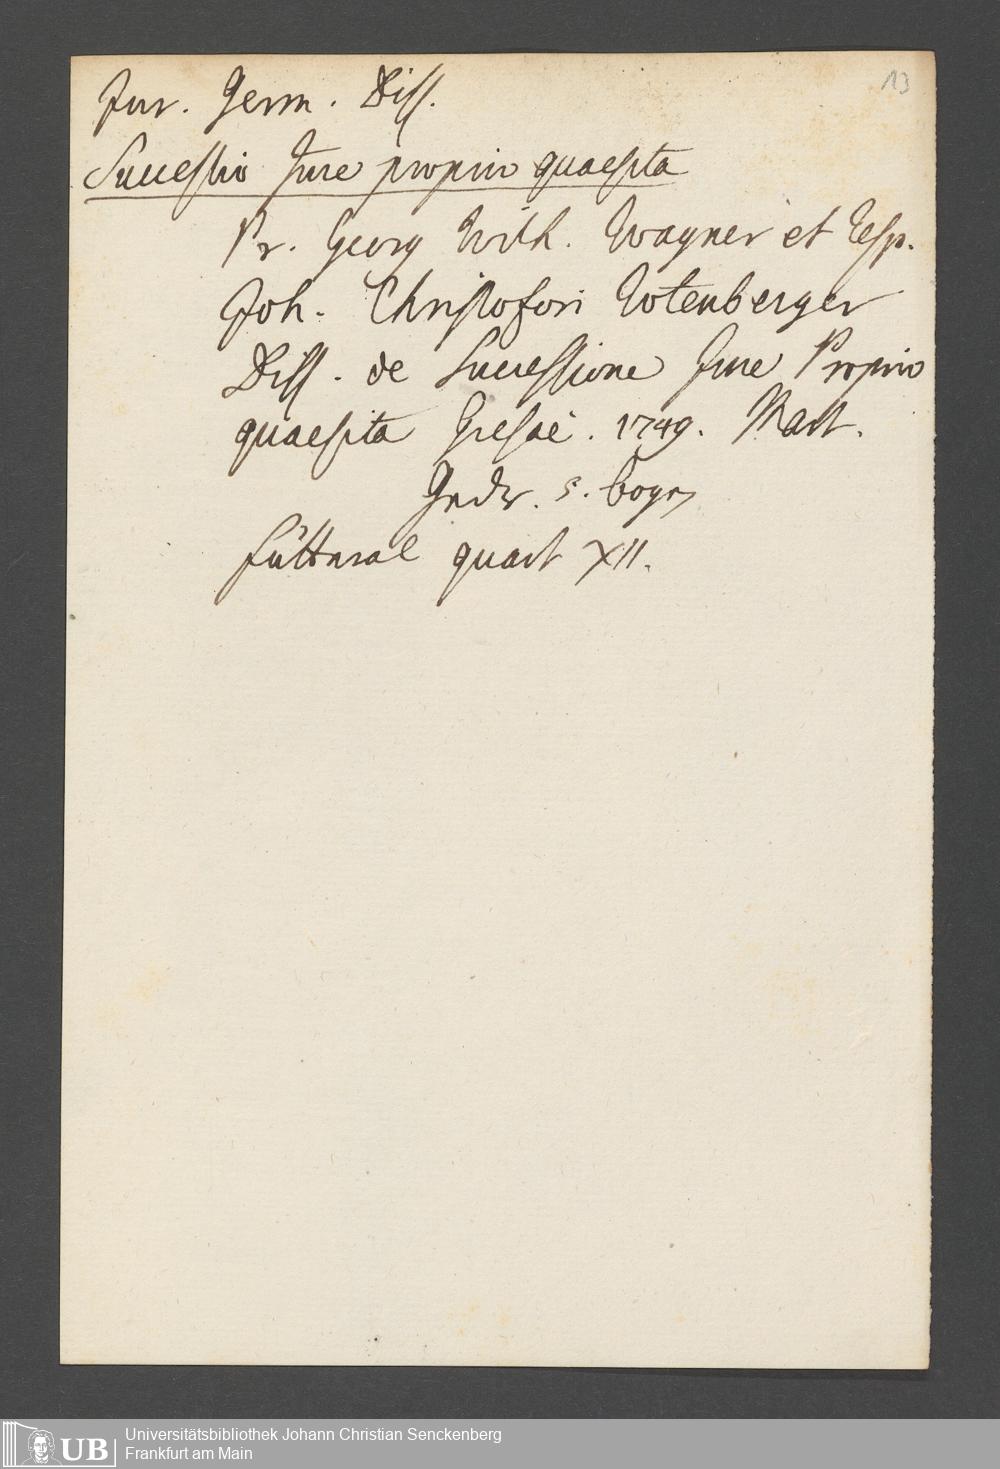 13
Jur. Germ. Diss.
Successio Jure proprio quaesita
Pr. Georg Wilh. Wagner et Resp.
Joh. Christofori Rotenberger
Diss. de Successione Jure Proprio
quaesita Gießae. 1749. Mart.
Gedr. 5. bogen
Futteral quart XII.
UB Universitätsbibliothek Johann Christian Senckenberg
Frankfurt am Main